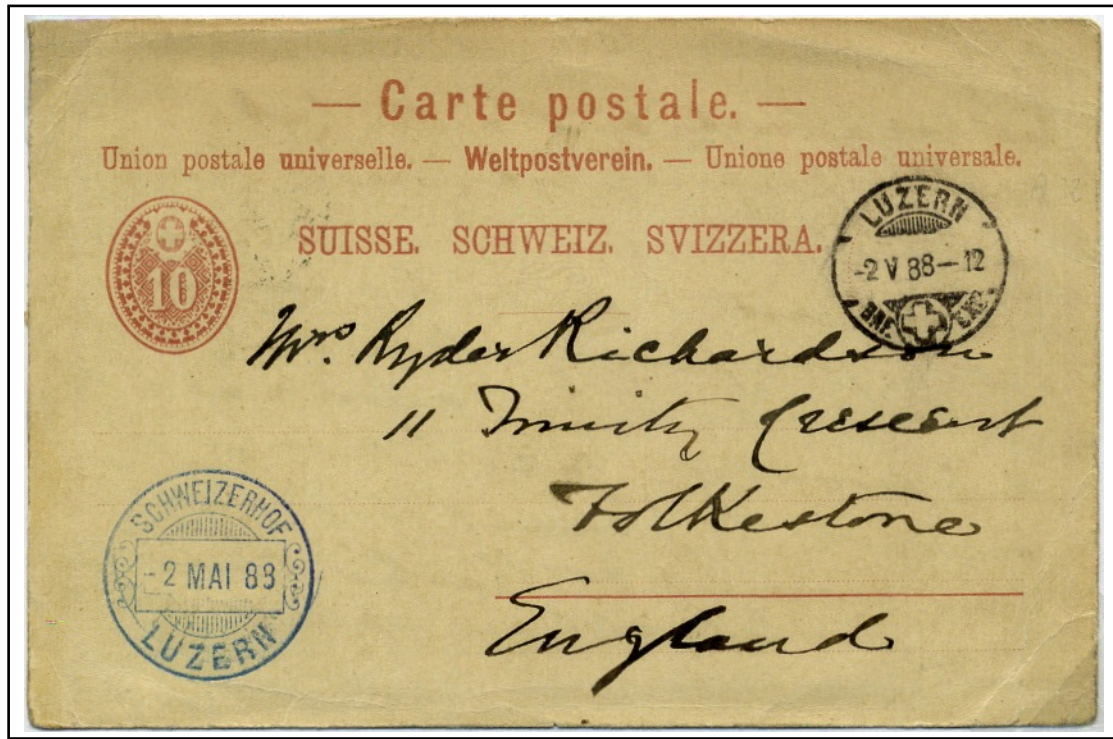 — Carte postale. —
Union postale universelle. — Weltpostverein. — Unione postale universale.
10
SUISSE. SCHWEIZ. SVIZZERA.
LUZERN
-2 V 88—12
BRF. EXP.
Mrs. Ryder Richardson
11 Trinity Crescent
Folkestone
England
SCHWEIZERHOF
-2 MAI 88
LUZERN